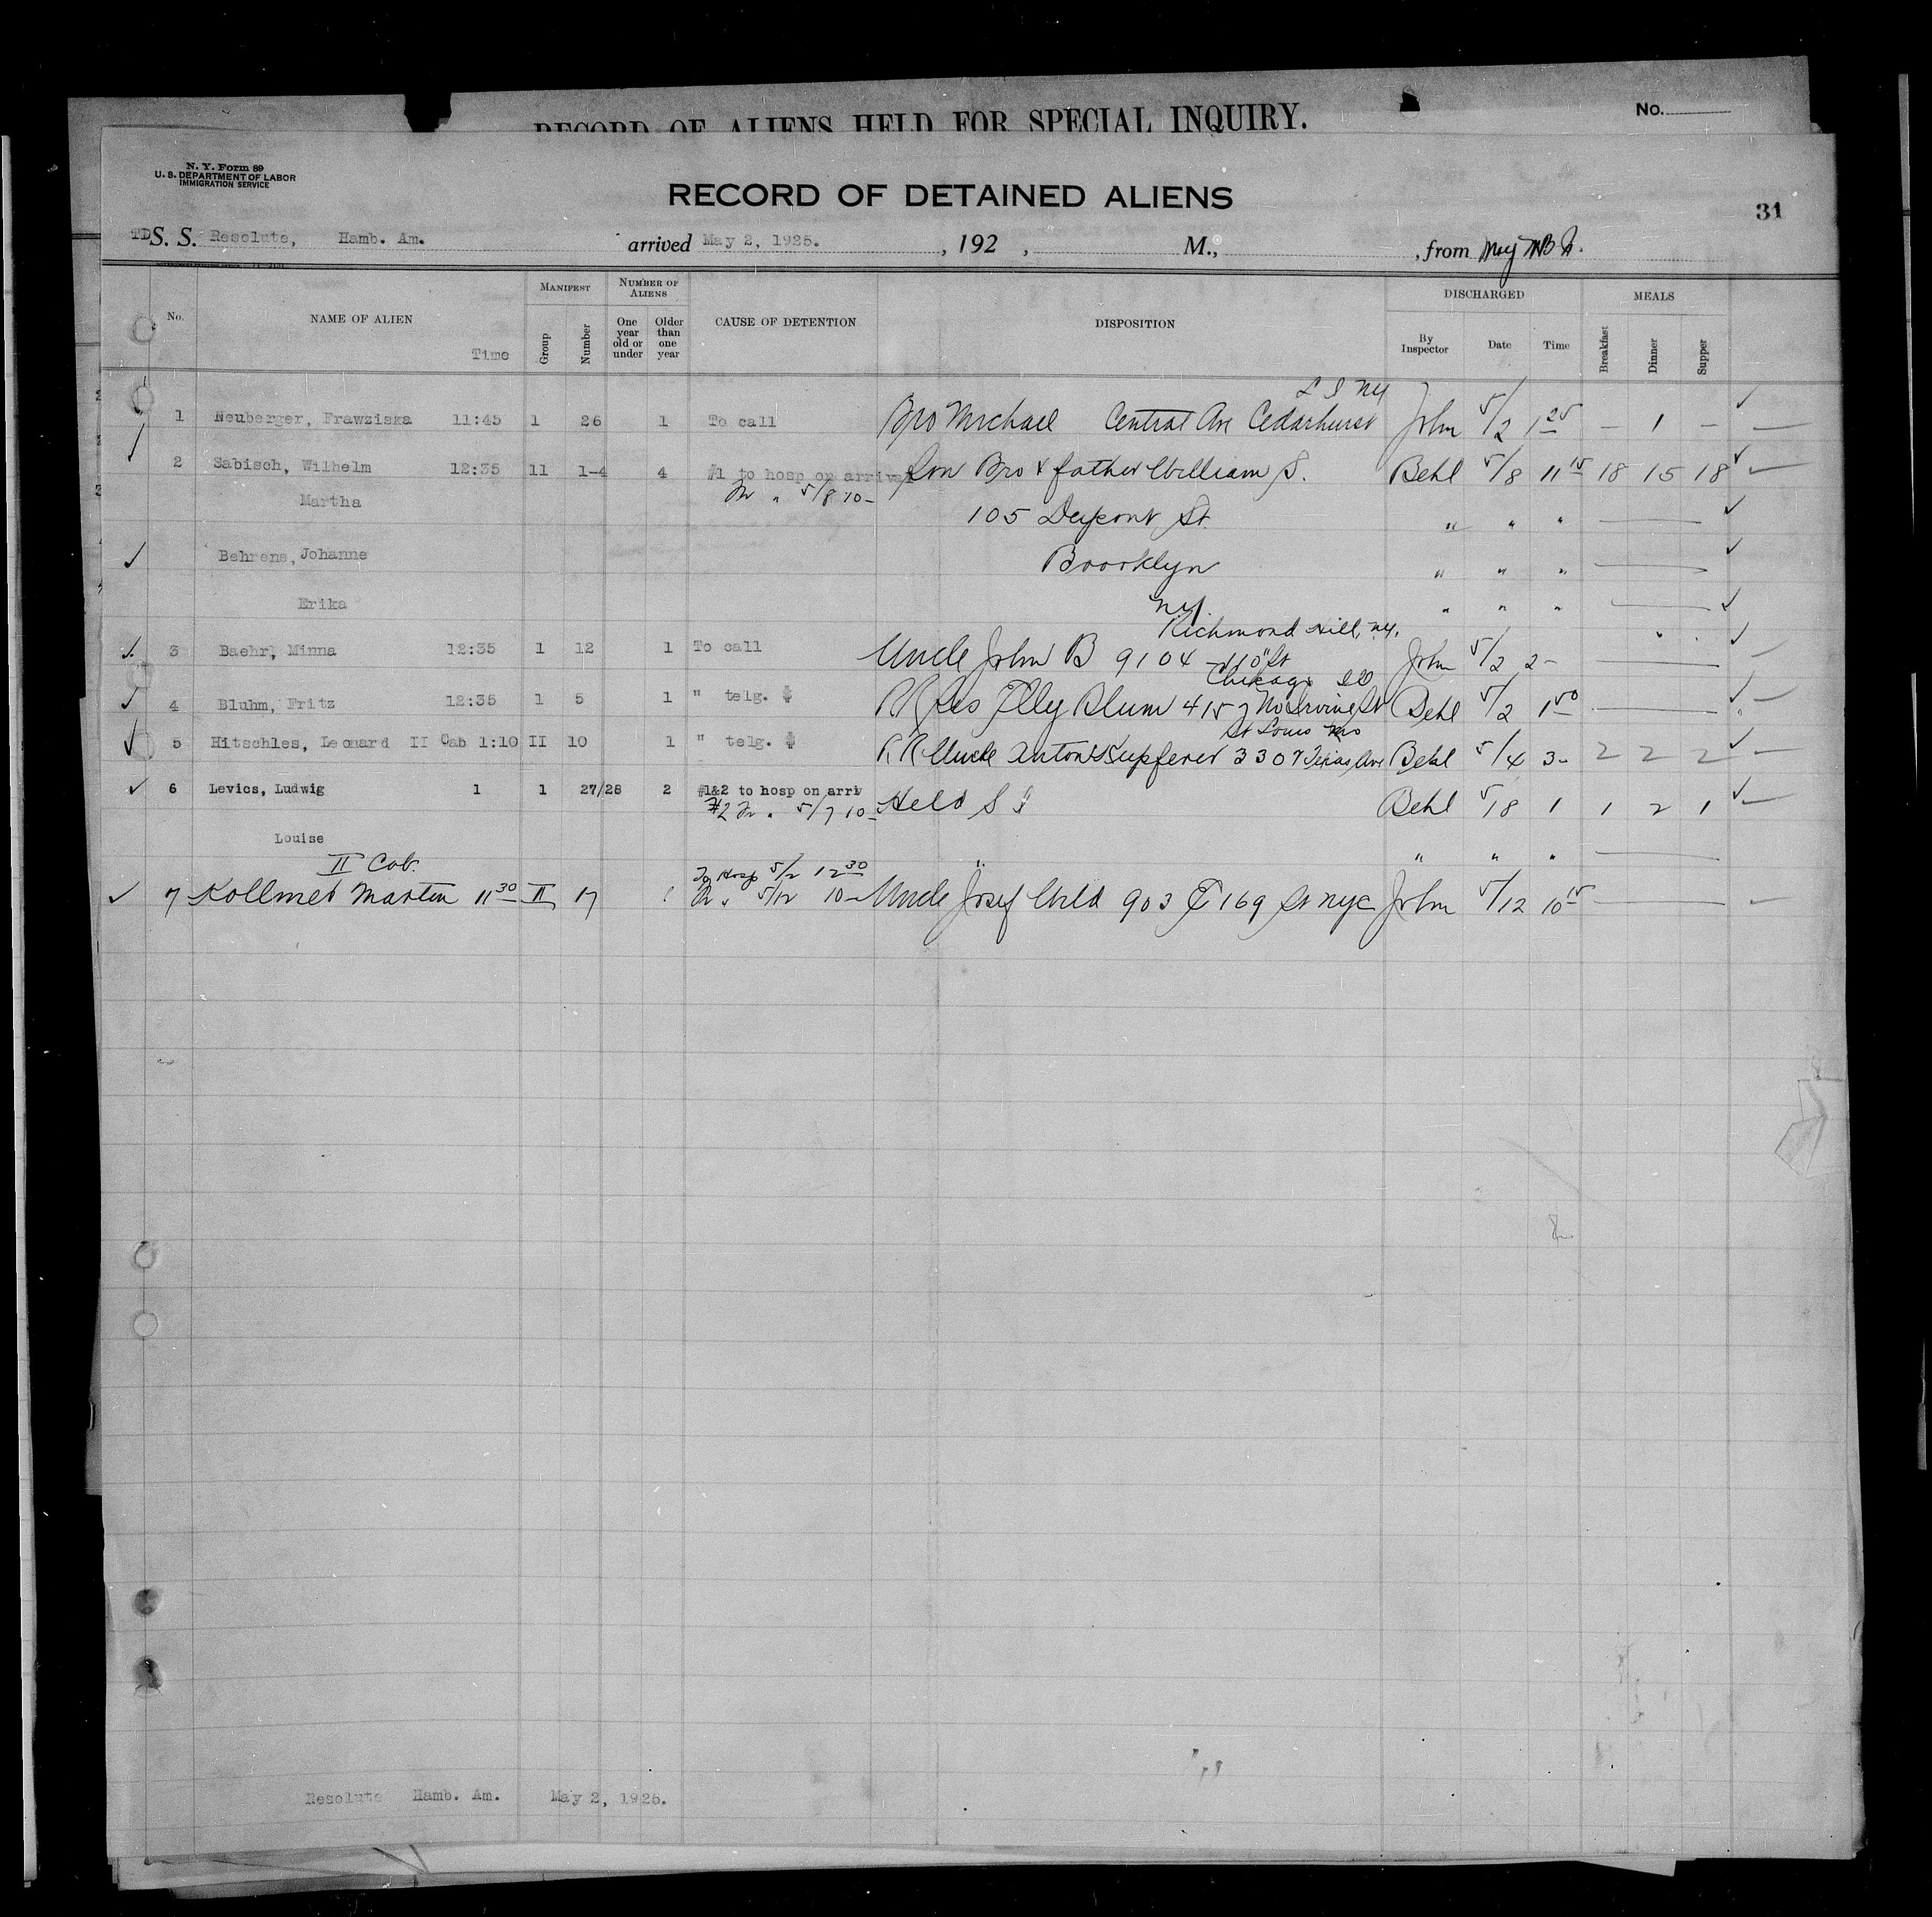 RECORD OF ALIENS HELD FOR SPECIAL INQUIRY.
No.
N. Y. Form 89
U. S. DEPARTMENT OF LABOR
IMMIGRATION SERVICE
RECORD OF DETAINED ALIENS
31
TD S. S. Resolute, Hamb. Am. arrived May 2, 1925. , 192 , M., , from
MANIFEST NUMBER OF ALIENS DISCHARGED MEALS
No. NAME OF ALIEN Time Group Number One year old or under Older than one year CAUSE OF DETENTION DISPOSITION By Inspector Date Time Breakfast Dinner Supper
L I NY
1 Neuberger, Frawziska 11:45 1 26 1 To call Bro Michael Central Ave Cedarhurst John 5/2 1 25 — 1 —
2 Sabisch, Wilhelm 12:35 11 1-4 4 #1 to hosp on arrival Son Bro & father William S. Behl 5/8 11 15 18 15 18
Fr " 5/8 10-
Martha 105 Dupont St " " "
Behrens, Johanne Brooklyn " " "
Erika NY. " " "
Richmond Hill, NY.
3 Baehr, Minna 12:35 1 12 1 To call Uncle John B 9104 – 110" St John 5/2 2-
Chicago Ill
4 Bluhm, Fritz 12:35 1 5 1 " telg. RR Elly Blum 4157 No Irving St Behl 5/2 1 50
St Louis Mo
5 Hitschles, Leonard II Cab 1:10 II 10 1 " telg. RR Uncle Anton Kupferer 3307 Texas Ave Behl 5/4 3- 2 2 2
6 Levics, Ludwig 1 1 27/28 2 #1&2 to hosp on arriv Held S I Behl 5/8 1 1 2 1
#2 Fr " 5/7 10-
Louise " " " "
II Cab. To Hosp 5/2 12 30
7 Kollmer Martin 11 30 II 17 1 Fr " 5/12 10- Uncle Josef 903 E 169 St NYC John 5/12 10 15
Resolute Hamb. Am. May 2, 1925.